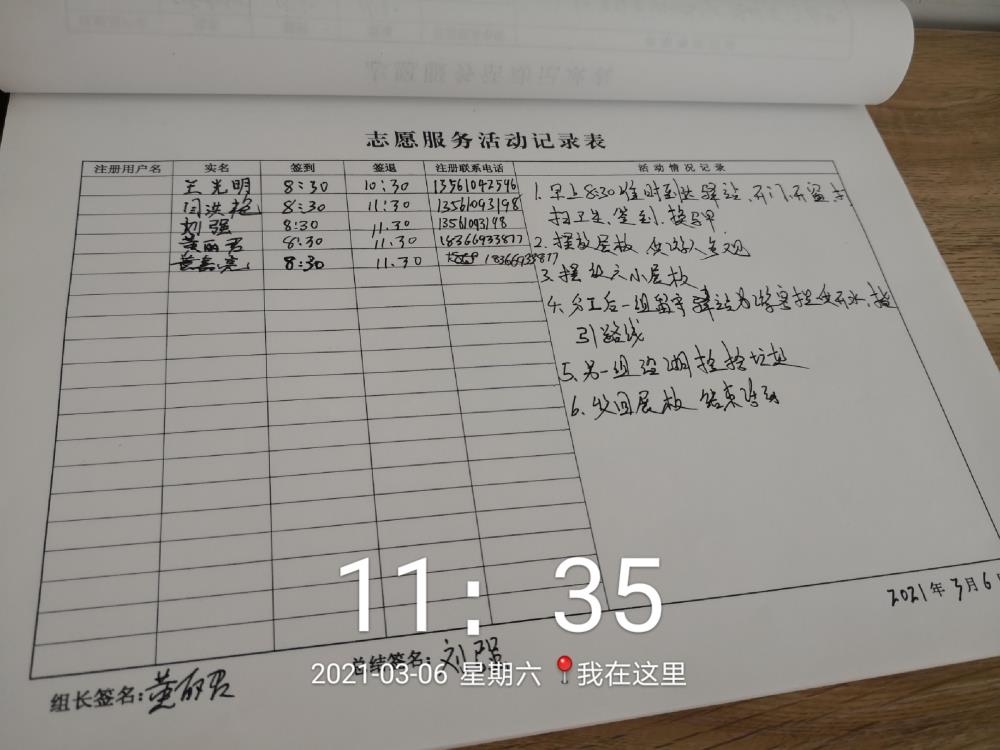 志愿服务活动记录表
注册用户名 实名 签到 签退 注册联系电话 活动情况记录
兰光明 8:30 10:30 13561042546
闫洪艳 8:30 11:30 13561093198
刘强 8:30 11.30 13561093198
黄丽君 8:30 11.30 18366933877
黄 亮 8:30 11.30 18366933877
1. 早上8:30准时到达驿站,开门,开窗,
扫卫生,签到,换马甲
2. 摆放展板
3. 摆放大小展板
4. 分工后一组留守驿站为游客提供开水,指
引路线
5. 另一组 湖捡拾垃圾
6. 收回展板 结束活动
2021年3月6日
11:35
总结签名:刘强
2021-03-06 星期六 我在这里
组长签名:黄丽君